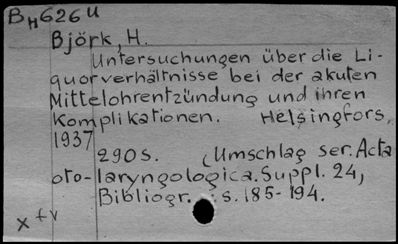 BH626u
Björk, H.
Untersuchungen über die Li-
quorverhältnisse bei der akuten
Mittelohrentzündung und ihren
Komplikationen. Helsingfors,
1937
290 s. (Umschlag ser. Acta
oto-laryngologica. Suppl. 24,
Bibliogr. : s. 185-194.
x + v